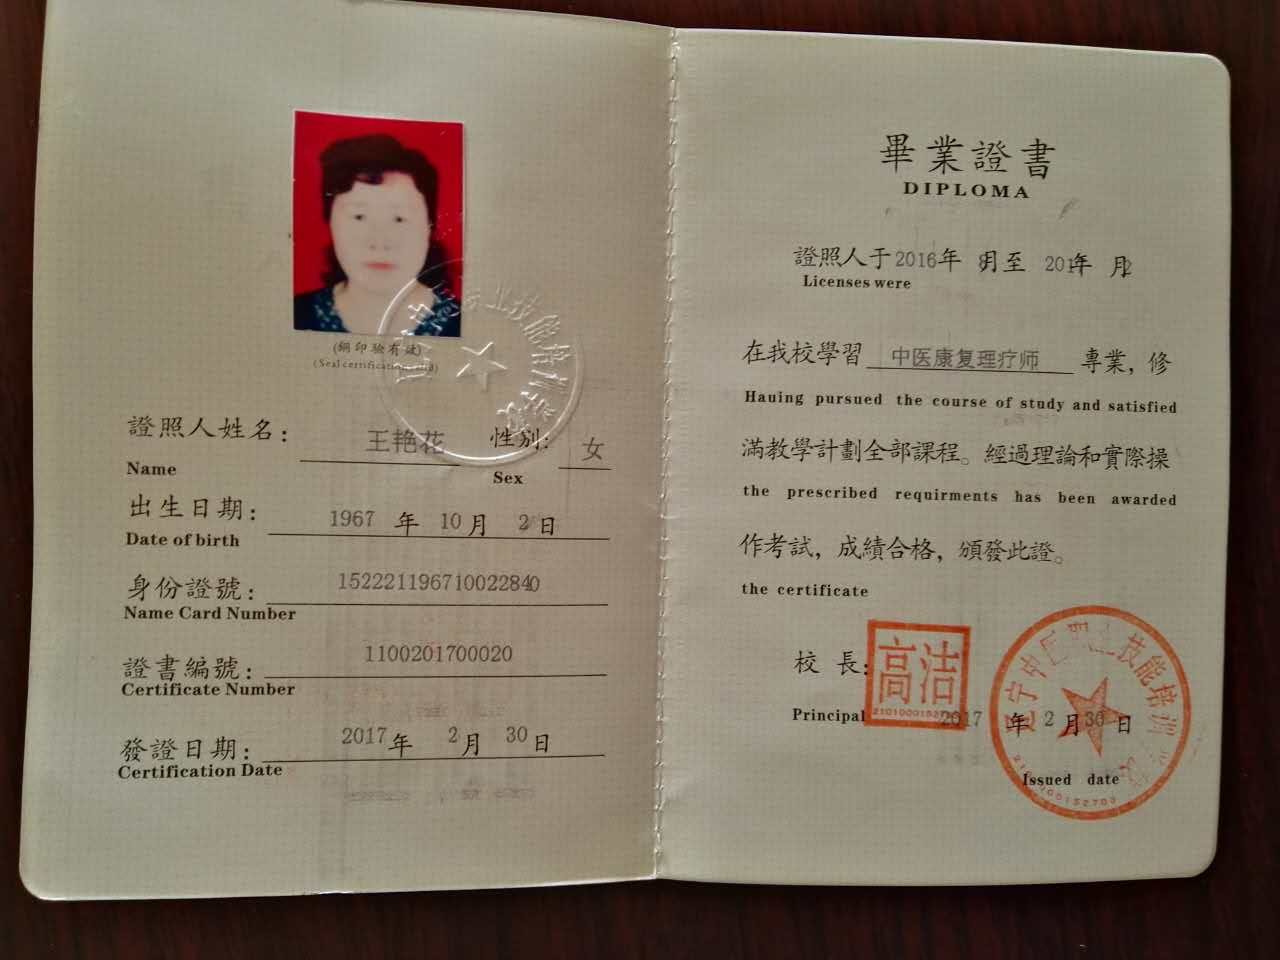 (鋼印驗有效)
(Seal certification valid)
證照人姓名：王艳花 性别：女
Name Sex
出生日期：1967 年 10 月 2 日
Date of birth
身份證號：152221196710022840
Name Card Number
證書編號：1100201700020
Certificate Number
發證日期：2017 年 2 月 30 日
Certification Date
畢業證書
DIPLOMA
證照人于2016年 8月至 201年 月2
Licenses were
在我校學習 中医康复理疗师 專業，修
Hauing pursued the course of study and satisfied
滿教學計劃全部課程。經過理論和實際操
the prescribed requirments has been awarded
作考試，成績合格，頒發此證。
the certificate
校 長：高洁
Principal 2017 年 2 月 30 日
Issued date
中医 技能培训